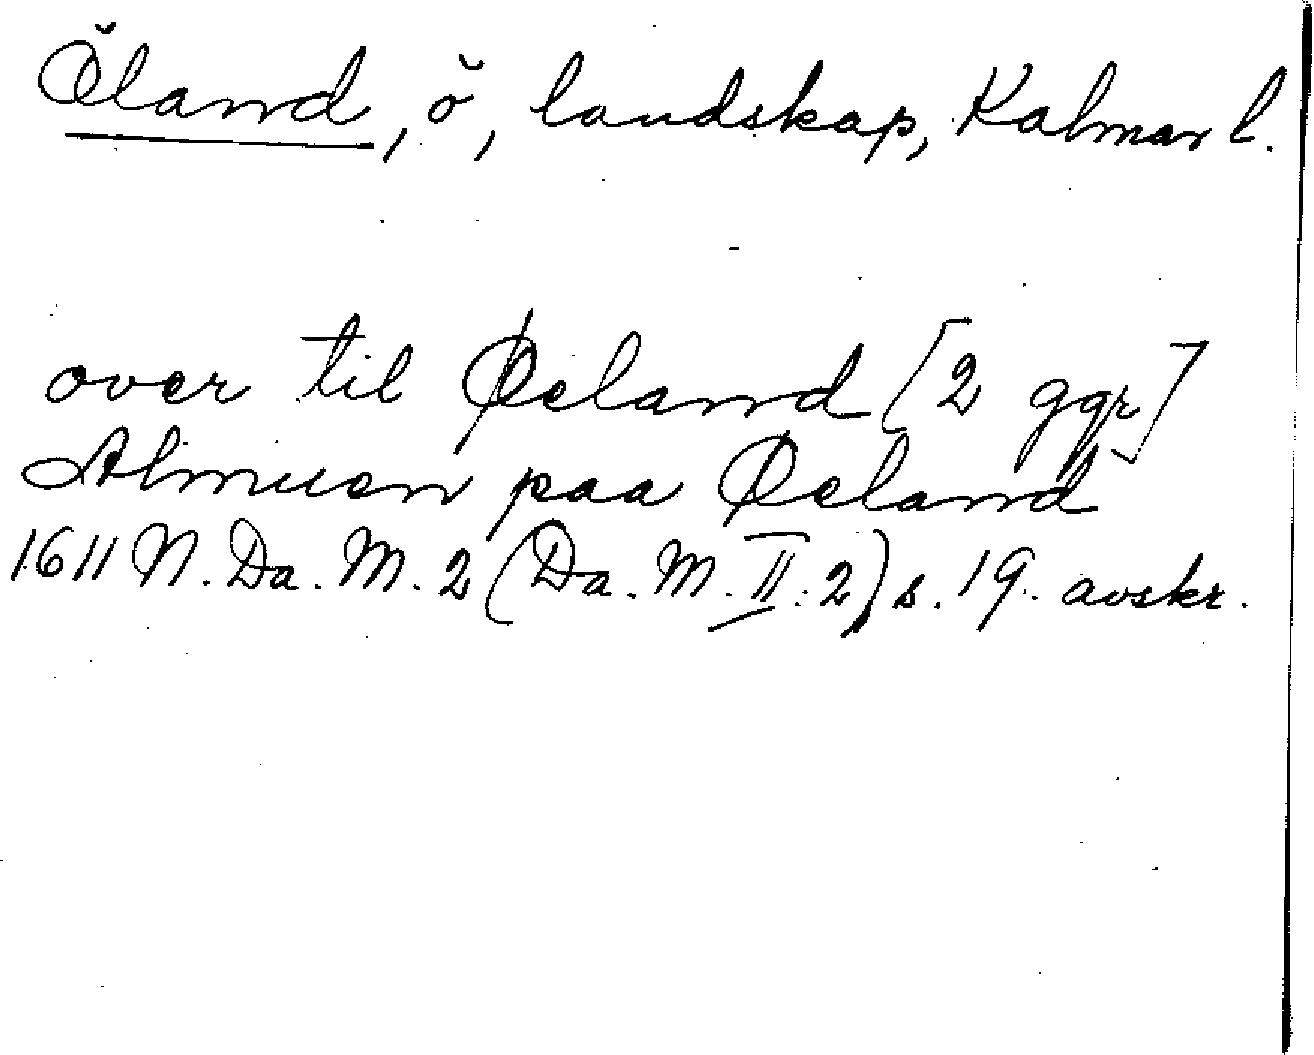 Öland, ö, landskap, Kalmar l.
over til Øeland [2 ggr]
Almuen paa Øeland
1611 N. Da. M. 2 (Da. M. II:2) s. 19. avskr.